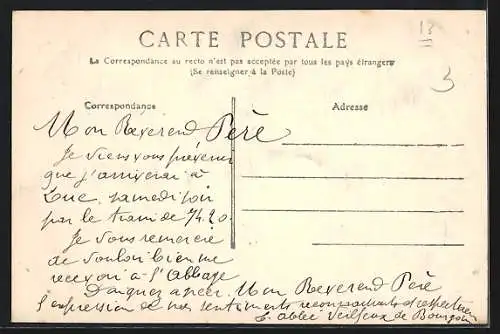 13
CARTE POSTALE
La Correspondance au recto n'est pas acceptée par tous les pays étrangers
(Se renseigner à la Poste)
3
Correspondance
Adresse
Mon Révérend Père
Je viens vous prévenir
que j'arriverai à
Luc, samedi soir
par le train de 7h20.
Je vous remercie
de vouloir bien me
recevoir à l'Abbaye
Daignez agréer, Mon Reverend Père
l'expression de mes sentiments reconnaissants et respectueux
abbé de Bourgoin